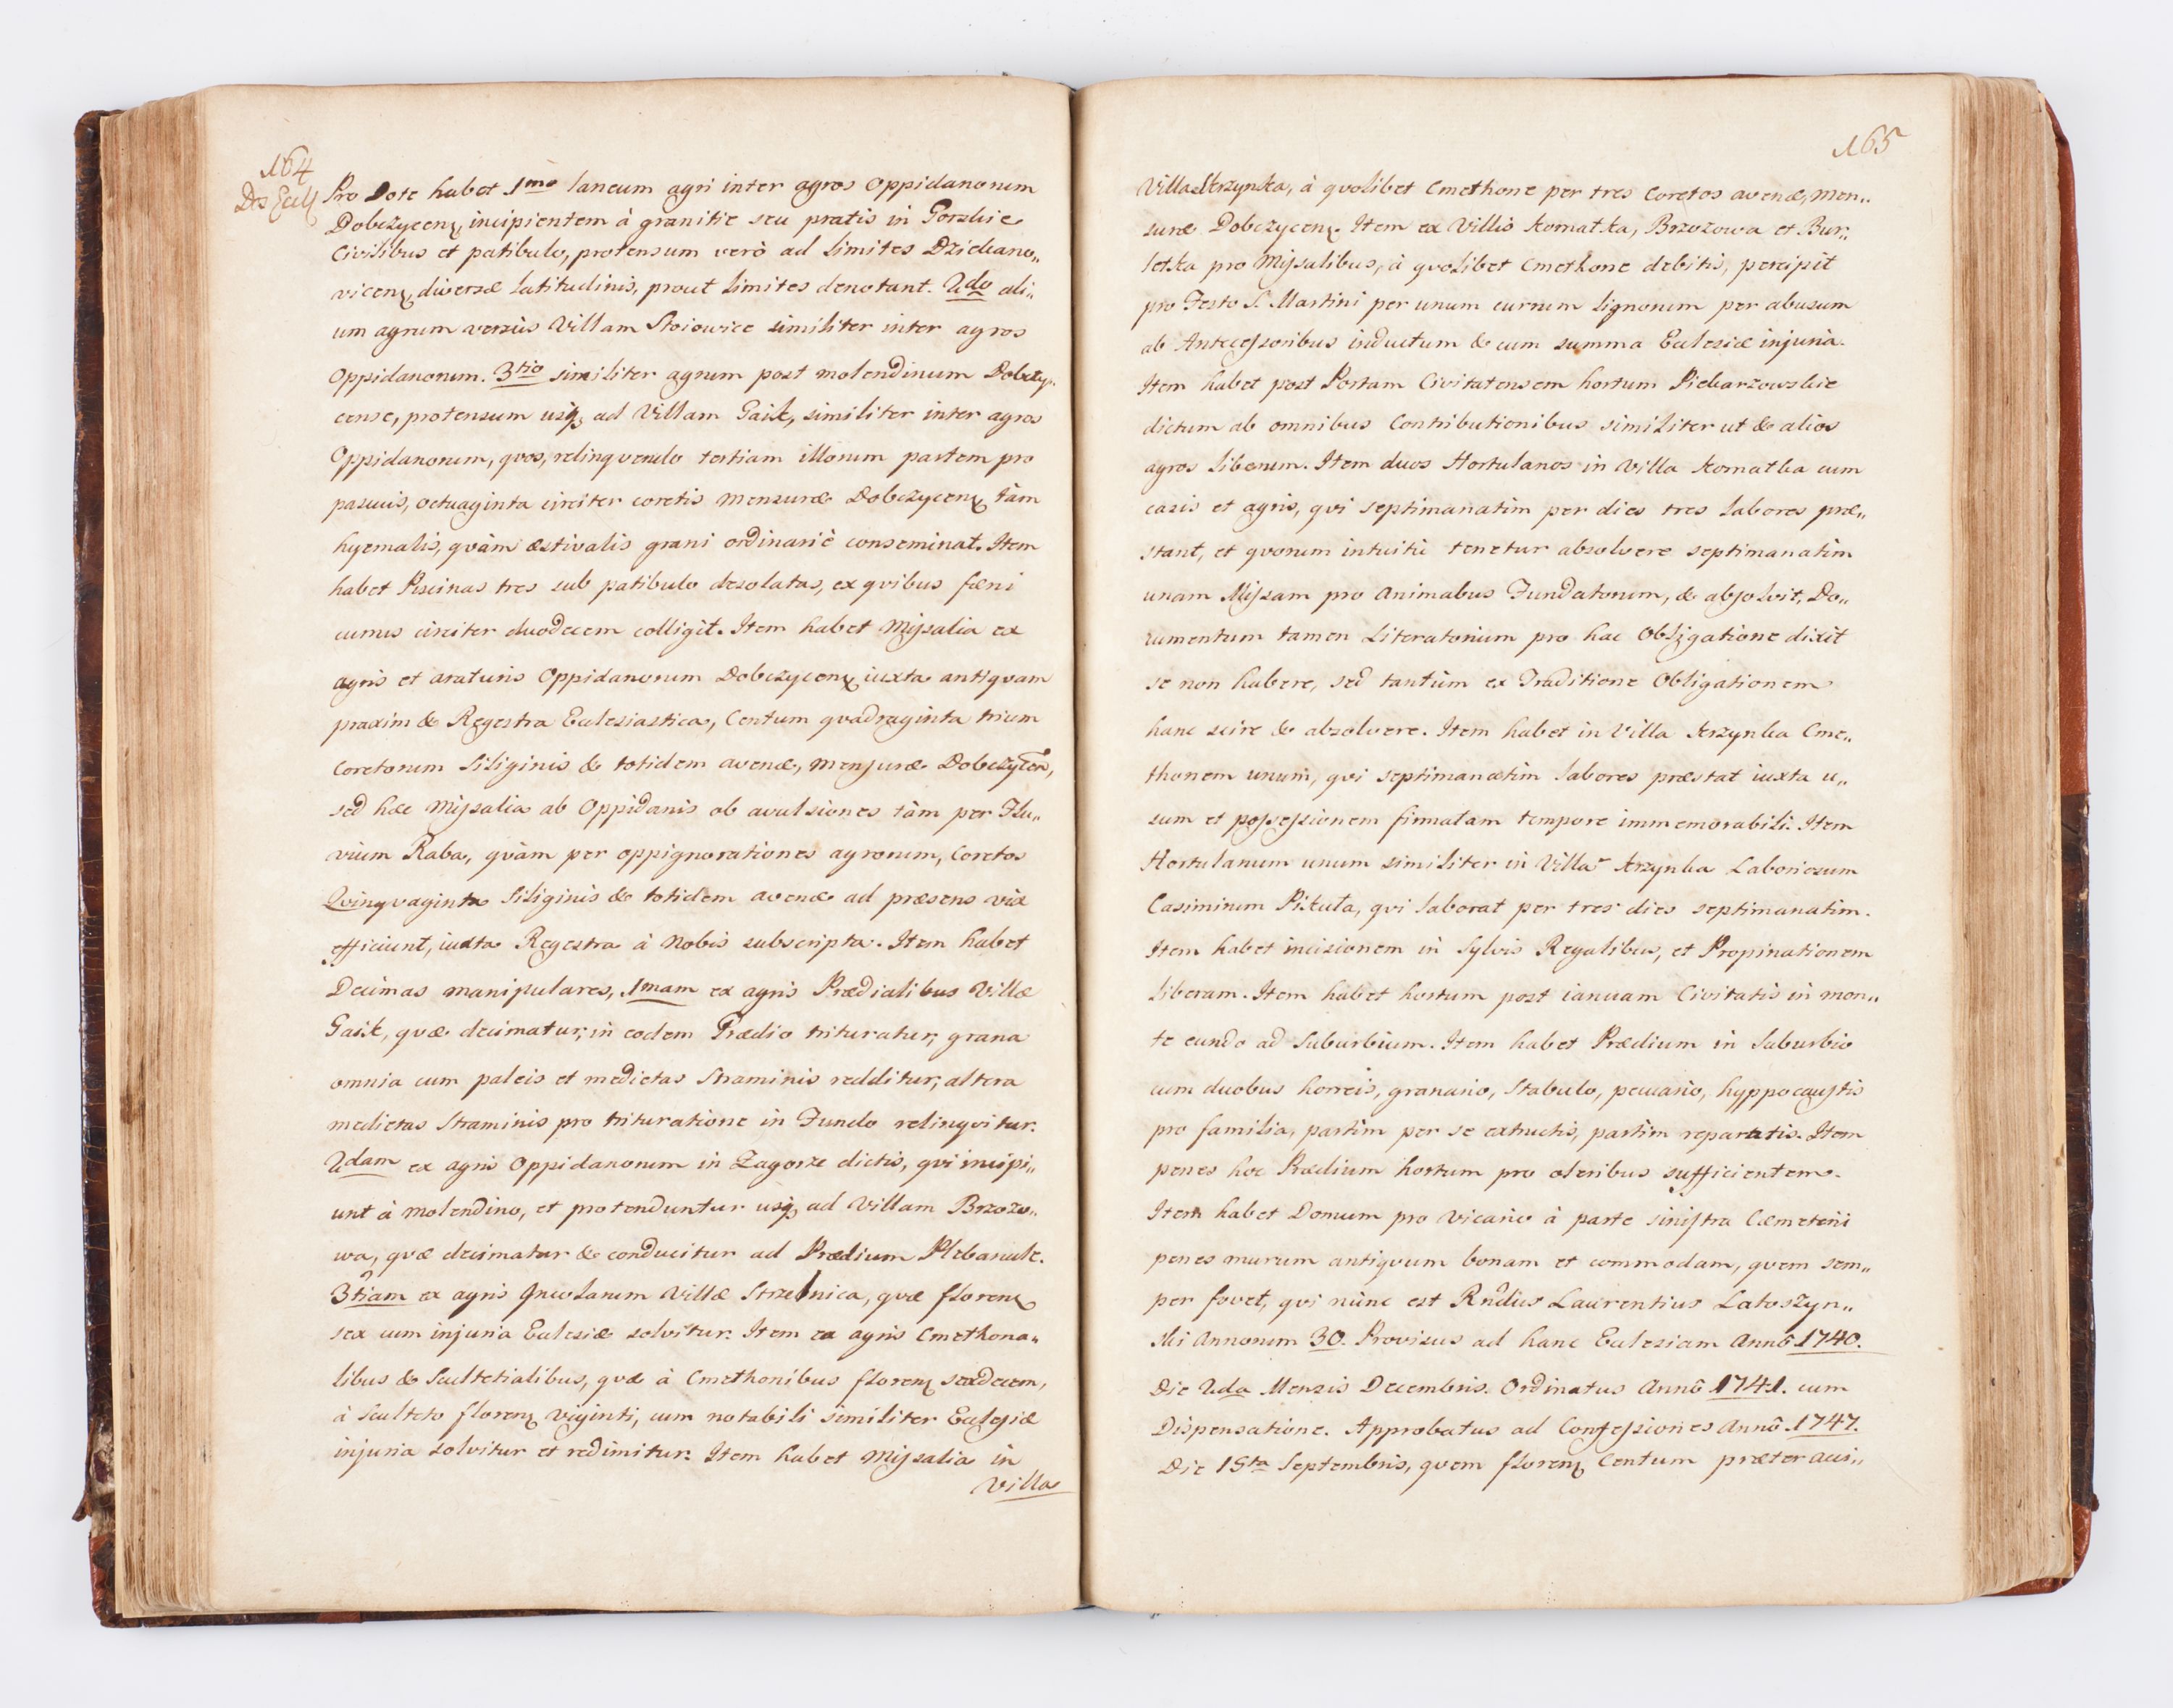 164
Dos Eccl
Pro Dote habet 1mo laneum agri inter agros Oppidanorum
Dobczycen, incipientem à granitie seu pratis in Gorzkie
Civilibus et patibulo, protensum verò ad limites Dziekano„
vicen, diversæ latitudinis, prout limites denotant. 2do ali„
um agrum versùs Villam Stoiowice similiter inter agros
Oppidanorum. 3tio similiter agrum post molendinum Dobczy„
cense, protensum usq, ad Villam Gaik, similiter inter agros
Oppidanorum, qvos, relinqvendo tertiam illorum partem pro
pascuis, octuaginta circiter coretis mensuræ Dobczycen tàm
hyemalis, qvàm æstivalis grani ordinariè conseminat. Item
habet Piscinas tres sub patibulo desolatas, ex qvibus fæni
currus circiter duodecem colligit. Item habet Missalia ex
agris et araturis Oppidanorum Dobczycen iuxta antiqvam
praxim & Regestra Ecclesiastica, Centum qvadraginta trium
Coretorum Siliginis & totidem avenæ, mensuræ Dobczycen,
sed hæc Missalia ab Oppidanis ob avulsiones tàm per Flu„
vium Raba, qvàm per oppignorationes agrorum, Coretos
Qvinqvaginta Siliginis & totidem avenæ ad præsens vix
efficiunt, iuxta Regestra à Nobis subscripta. Item habet
Decimas manipulares, 1mam ex agris Prædialibus Villæ
Gaik, qvæ decimatur, in eodem Prædio trituratur, grana
omnia cum paleis et medietas Straminis redditur, altera
medietas Straminis pro trituratione in Fundo relinqvitur.
2dam ex agris Oppidanorum in Zagorze dictis, qvi incipi„
unt à molendino, et protenduntur usq, ad Villam Brzozo„
wa, qvæ decimatur & conducitur ad Prædium Plebanale.
3tiam ex agris Incolarum Villæ Strzelnica, qvæ floren
sex cum injuria Ecclesiæ solvitur. Item ex agris Cmethona„
libus & Scultetialibus, qvæ à Cmethonibus floren sexdecem,
à Sculteto floren viginti, cum notabili similiter Ecclesiæ
injuria solvitur et redimitur. Item habet Missalia in
Villa
165
Villa Krzynska, à qvolibet Cmethone per tres Coretos avenæ, men„
suræ Dobczycen. Item ex Villis Komatka, Brzozowa et Bur„
letka pro Missalibus, à qvolibet Cmethone debitis, percipit
pro Festo S. Martini per unum currum lignorum per abusum
ab Antecessoribus inductum & cum summa Ecclesiæ injuria.
Item habet post Portam Civitatensem hortum Piekarzowskie
dictum ab omnibus Contributionibus similiter ut & alios
agros liberum. Item duos Hortulanos in Villa Komatka cum
casis et agris, qvi septimanatim per dies tres labores præ„
stant, et qvorum intuitu tenetur absolvere septimanatim
unam Missam pro Animabus Fundatorum, & absolvit, Do„
cumentum tamen Literatorium pro hac Obligatione dixit
se non habere, sed tantùm ex Traditione Obligationem
hanc scire & absolvere. Item habet in Villa Krzynka Cme„
thonem unum, qvi septimanatim labores præstat iuxta u„
sum et possessionem firmatam tempore immemorabili. Item
Hortulanum unum similiter in Villa Krzynka Laboriosum
Casimirum Pikuta, qvi laborat per tres dies septimanatim.
Item habet incisionem in Sylvis Regalibus, et Propinationem
liberam. Item habet hortum post ianuam Civitatis in mon„
te eundo ad Suburbium. Item habet Prædium in Suburbio
cum duobus horreis, granario, Stabulo, pecuario, hyppocaustis
pro familia, partim per se extructis, partim reparatis. Item
penes hoc Prædium hortum pro oleribus sufficientem.
Item habet Domum pro Vicario à parte sinistra Cæmeterii
penes murum antiqvum bonam et commodam, qvem sem„
per fovet, qvi nùnc est Rndus Laurentius Latoszyn„
ski Annorum 30. Provisus ad hanc Ecclesiam Annô 1740.
Die 2da Mensis Decembris. Ordinatus Annô 1741. cum
Dispensatione. Approbatus ad Confessiones Annô 1747.
Die 15ta Septembris, qvem floren Centum præter acci„